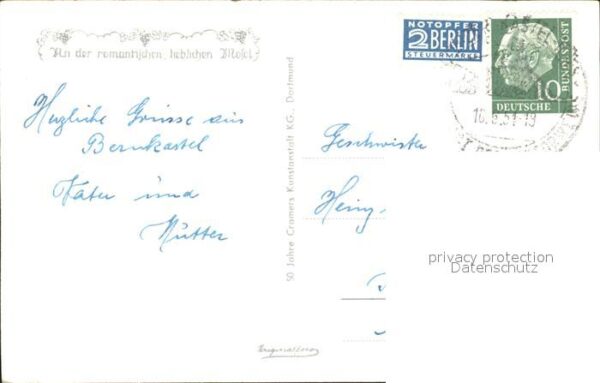 An der romantischen, lieblichen Mosel
Herzliche Grüsse aus
Bernkastel
Vater und
Mutter
50 Jahre Cramers Kunstanstalt KG., Dortmund
NOTOPFER
2 BERLIN
STEUERMARKE
DEUTSCHE
BUNDESPOST
10
Geschwister
Heinz
privacy protection
Datenschutz